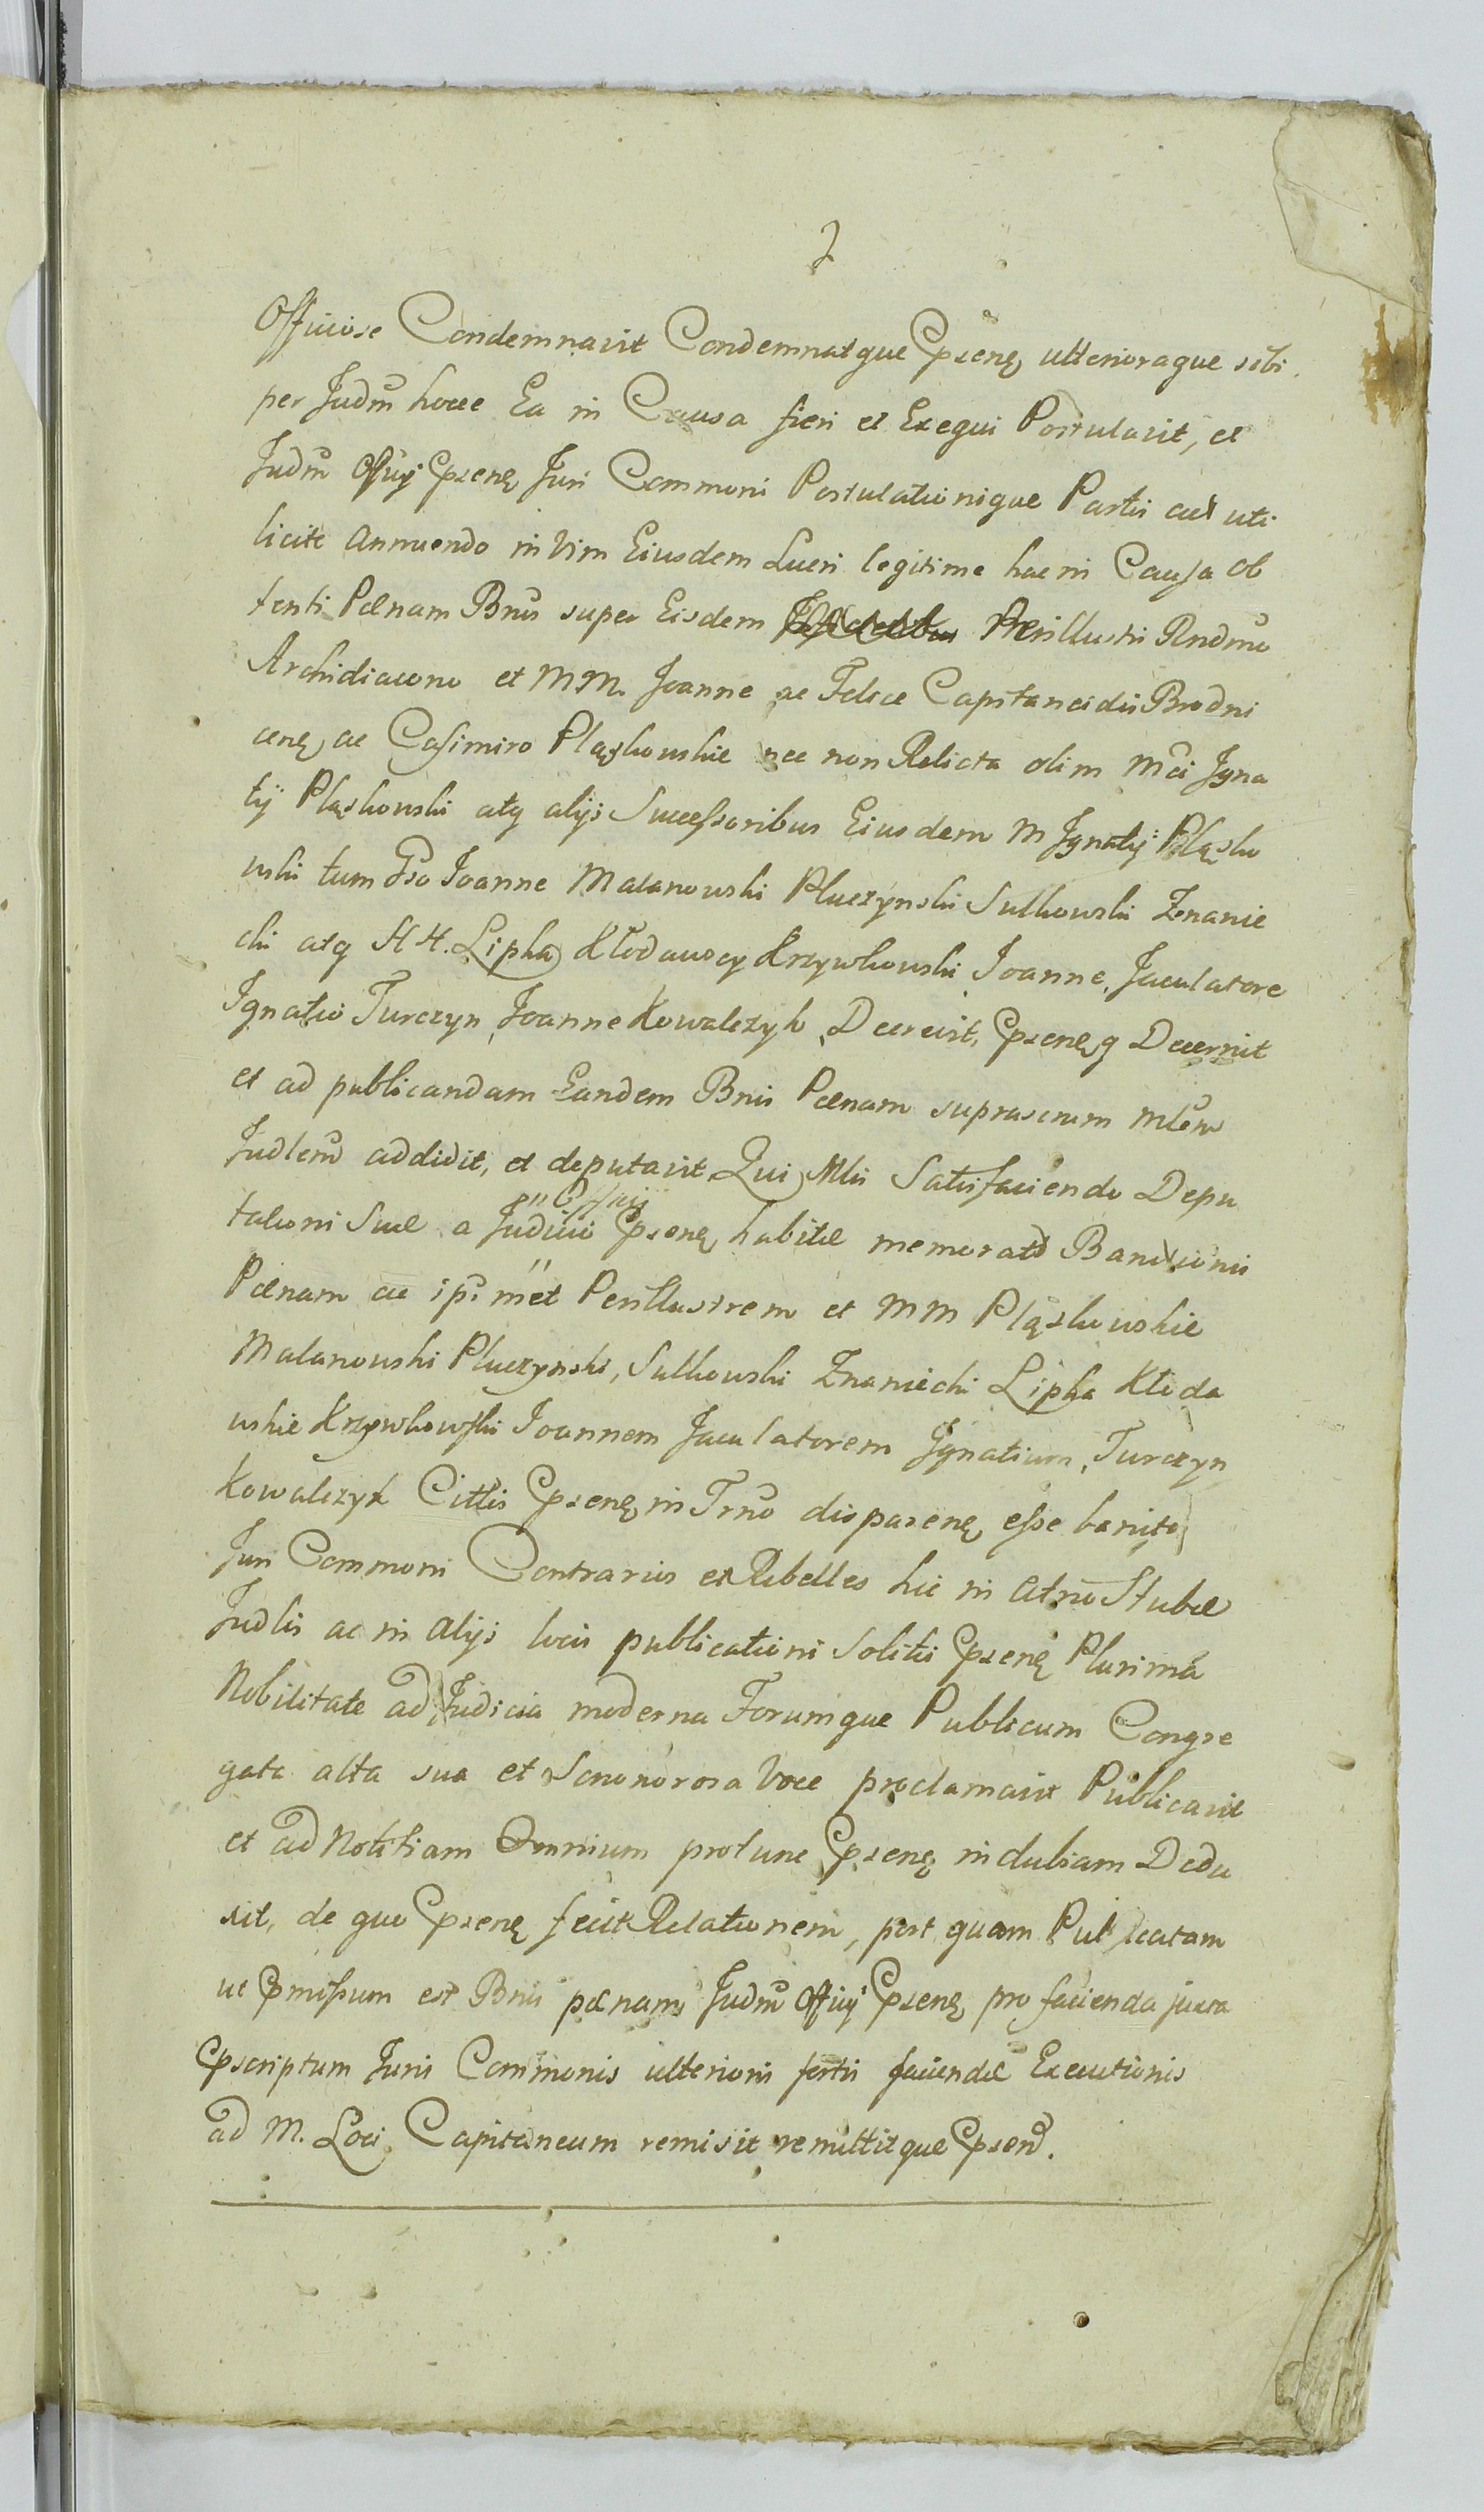 2
Officiose Condemnavit Condemnatque Ppsenę ulterioraque sibi
per Judm hocce Ea in Causa fieri et Exequi Postulavit, et
Judm Offuij Ppsenę Juri Communi Postulationique Partis act uti
licite annuendo in Vim Eiusdem Lucri legitime hac in Causa Ob
tenti Pænam Bnis super Eisdem Perillustri Rndmo
Archidiacono et MM. Joanne ac Felice Capitaneidis Brodni
cenę ac Casimiro Pląskowskie nec non Relicta olim Mci Igna
tij Pląskowski atq alijs Successoribus Eiusdem M Ignatij Pląsko
wski tum Gso Joanne Malanowski Pluczynski Sulkowski Znanie
cki atq HH. Lipka Kłodawscy Krzywkowski Joanne, Jaculatore
Ignatio Turczyn Joanne Kowalczyk Decrevit, Ppsenęq Decernit
et ad publicandam Eandem Bnis Pænam suprascrum Mlem
Judlem addidit, et deputavit Qui Mlis Satisfaciendo Depu
Offuij
tationi Suæ a Judicio Ppsenę habitæ memorat Bannitionis
Pænam ac ipsmet Perillustrem et MM Pląskowskie
Malanowski Pluczynski, Sulkowski Znaniecki Lipka Kłoda
wskie Krzywkowski Joannem Jaculatorem Ignatium, Turczyn
Kowalczyk Cittis Ppsenę in Trno disparenę esse banitos
Juri Communi Contrarios et Rebelles hic in Atrio Stubæ
Judlis ac in alijs locis publicationi Solitis Ppsenę Plurima
Nobilitate ad Judicia moderna Forumque Publicum Congre
gata alta sua et Sononorosa Voce proclamavit Publicavit
et ad Notitiam Omnium protunc Ppsenę indubiam Dedu
xit, de quo Ppsenę fecit Relationem, post quam Publicatam
ut Ppmissum est Bnis pænam Judm Offuij Ppsenę pro facienda juxta
Ppscriptum Juris Communis ulteriori fortis faciendæ Executionis
ad M. Loci Capitaneum remisit remittitque Ppsen.